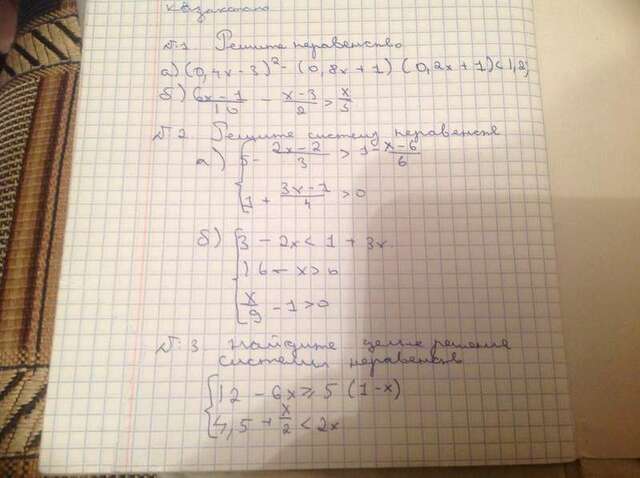 Казахстана
№1 Решите неравенство
а) (0,4x - 3)² - (0,8x + 1) (0,2x + 1) < 1,2
б) (6x - 1)/10 - (x - 3)/2 > x/5
№2 Решите систему неравенств
а) { 5 - (2x - 2)/3 > 1 - (x - 6)/6
1 + (3x - 1)/4 > 0
б) { 3 - 2x < 1 + 3x
16 - x > 0
x/9 - 1 > 0
№3 Найдите целые решения
системы неравенств
{ 12 - 6x ⩾ 5 (1 - x)
4,5 + x/2 < 2x